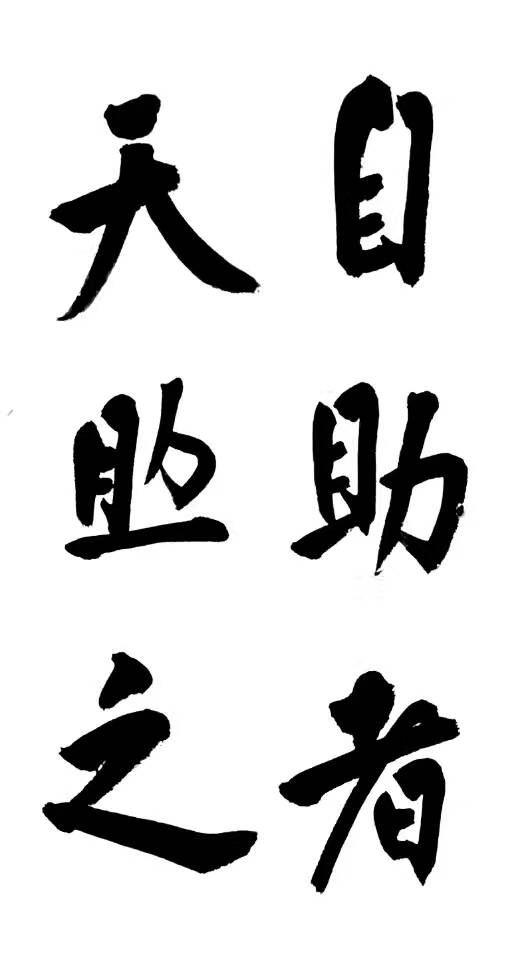 自助者
天助之